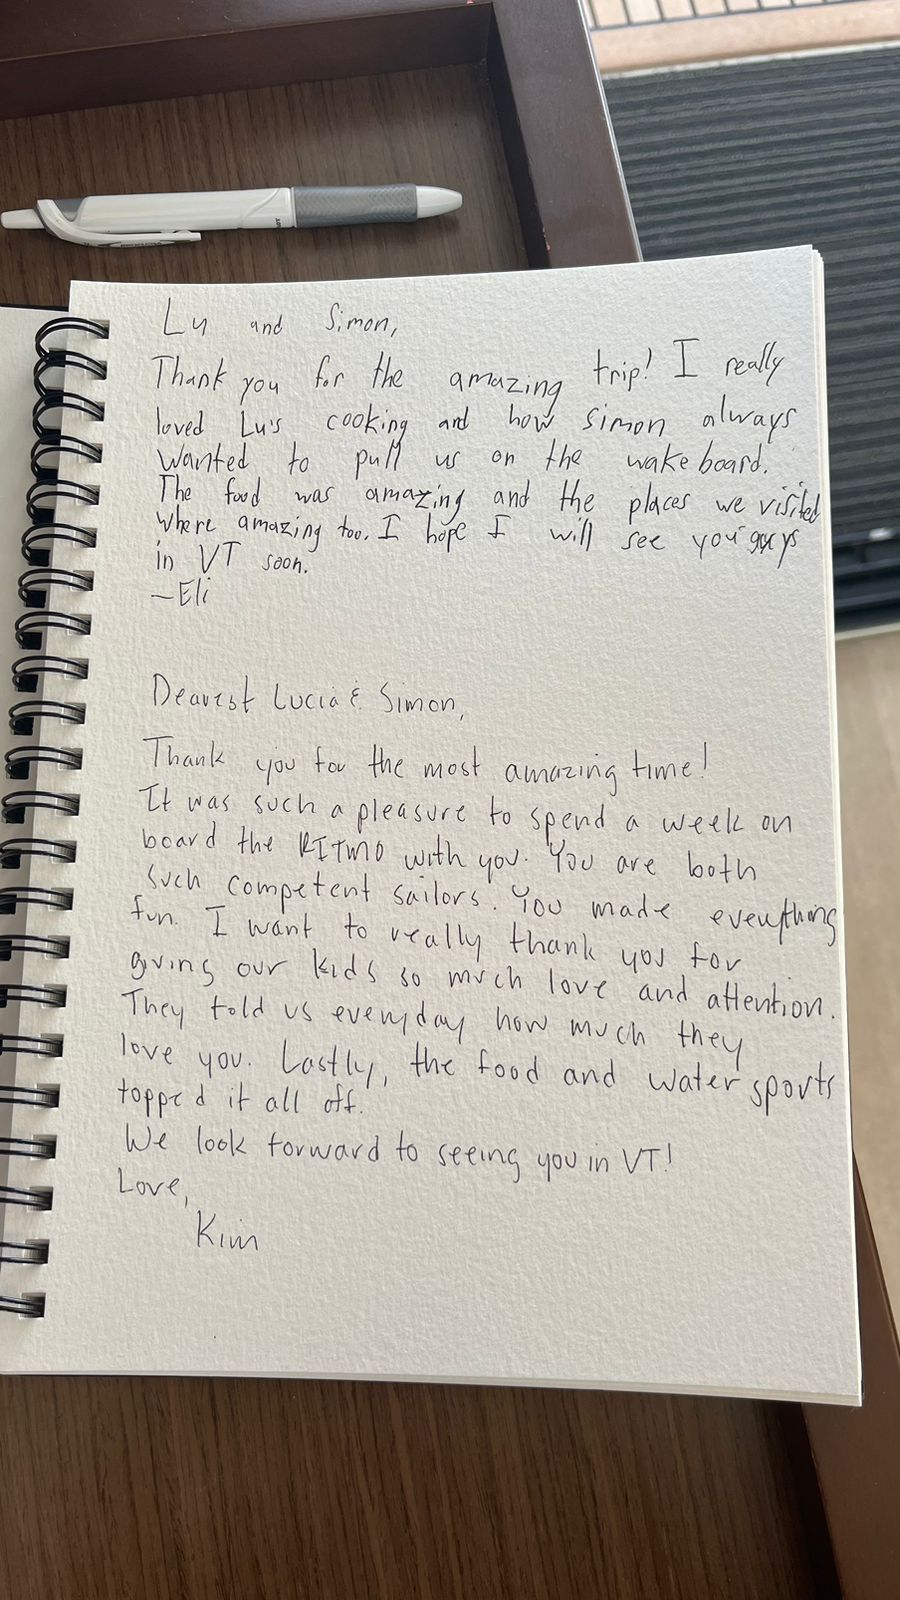 Lu and Simon,
Thank you for the amazing trip! I really
loved Lu's cooking and how simon always
wanted to pull us on the wake board.
The food was amazing and the places we visited
where amazing too. I hope I will see you guys
in VT soon.
—Eli
Dearest Lucia & Simon,
Thank you for the most amazing time!
It was such a pleasure to spend a week on
board the RITMO with you. You are both
such competent sailors. You made everything
fun. I want to really thank you for
giving our kids so much love and attention.
They told us everyday how much they
love you. Lastly, the food and water sports
topped it all off.
We look forward to seeing you in VT!
Love,
Kim